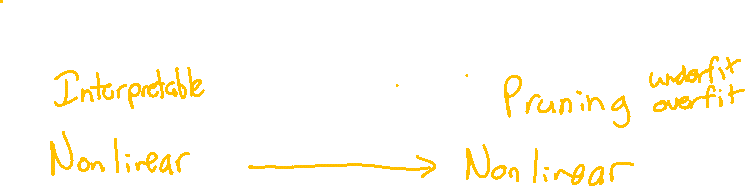 Interpretable
Pruning underfit
overfit
Nonlinear → Nonlinear